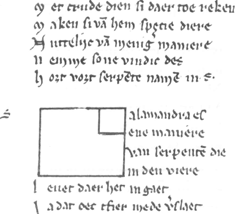 M et crude dien si daer toe reken
M aken si vā hem specie diere
N uttelijc vā menig maniere
N emme so ne vindic des
H ort vort serpēte namē in s.
s
alamandra es
ene maniere
van serpenten die
in den viere
l euet daer het in gaet
l a dat oec tfier mede v'slaet